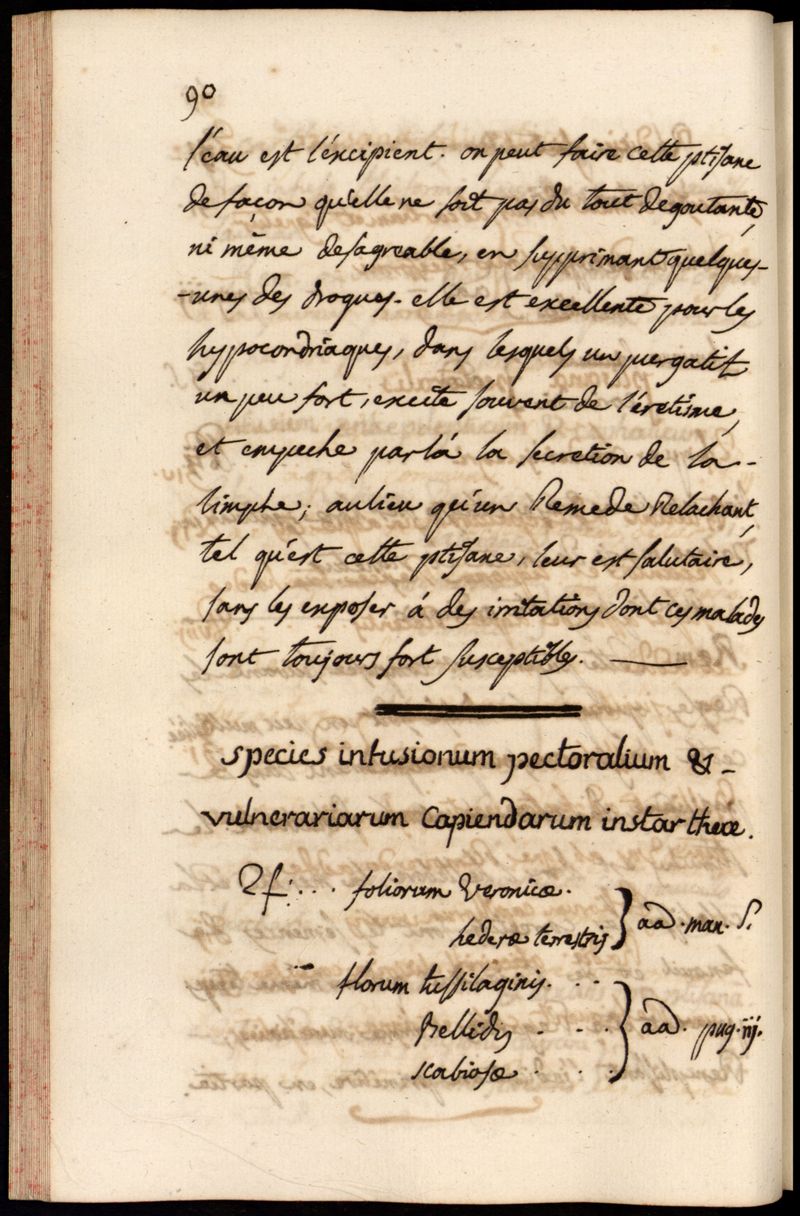 90
l'éau est l'éxcipient. on peut faire cette ptisane
de façon qu'elle ne soit pas du tout degoutante,
ni même desagreable, en supprimant quelques-
-unes des drogues. elle est excellente pour les
hypocondriaques, dans lesquels un purgatif
un peu fort, excite souvent de l'éretisme,
et empeche par là la secretion de la-
limphe; aulieu qu'un Remede Relachant,
tel qu'est cette ptisane, leur est salutaire,
sans les exposer á des irritations dont ces malades
sont toujours fort susceptibles. —
species infusionum pectoralium & -
vulnerariarum capiendarum instar theæ.
♃: ... foliorum Veronicæ.
hederæ terrestris } aā. man. S.
florum tussilaginis. . .
Bellidis . . . } aā. pug. iij.
scabiosæ . . .